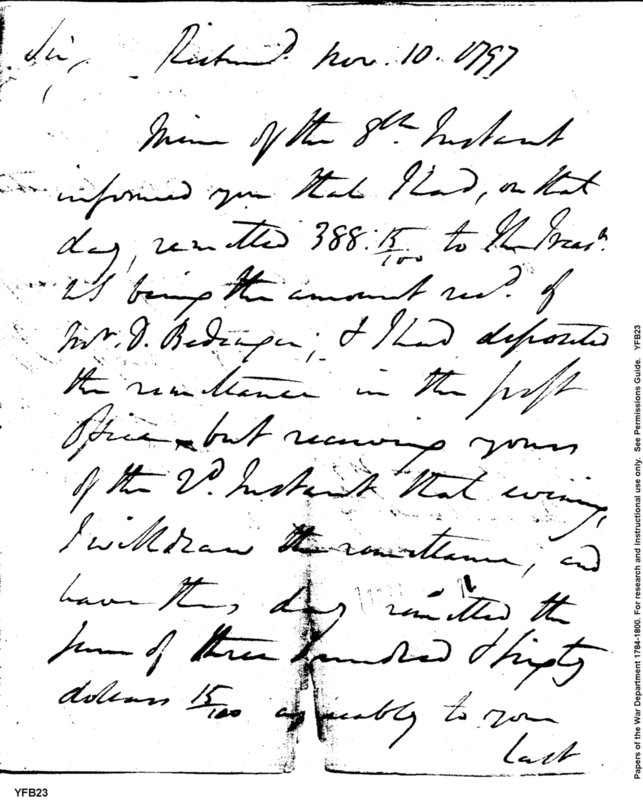 Sir, Richmd. Nov. 10. 1797
Mine of the 8th. Instant
informed you that I had, on that
day, remitted 388.15/100 to the Treasr.
US being the amount recd. of
Mr. D. Bedinger; & I had deposited
the remittance in the post
Office, but receiving yours
of the 2d. Instant that evening,
I withdraw the remittance, and
have this day remitted the
sum of three hundred & sixty
dolears 15/100 agreeably to your
last
Papers of the War Department 1784-1800. For research and Instructional use only. See Permissions Guide. YFB23
YFB23